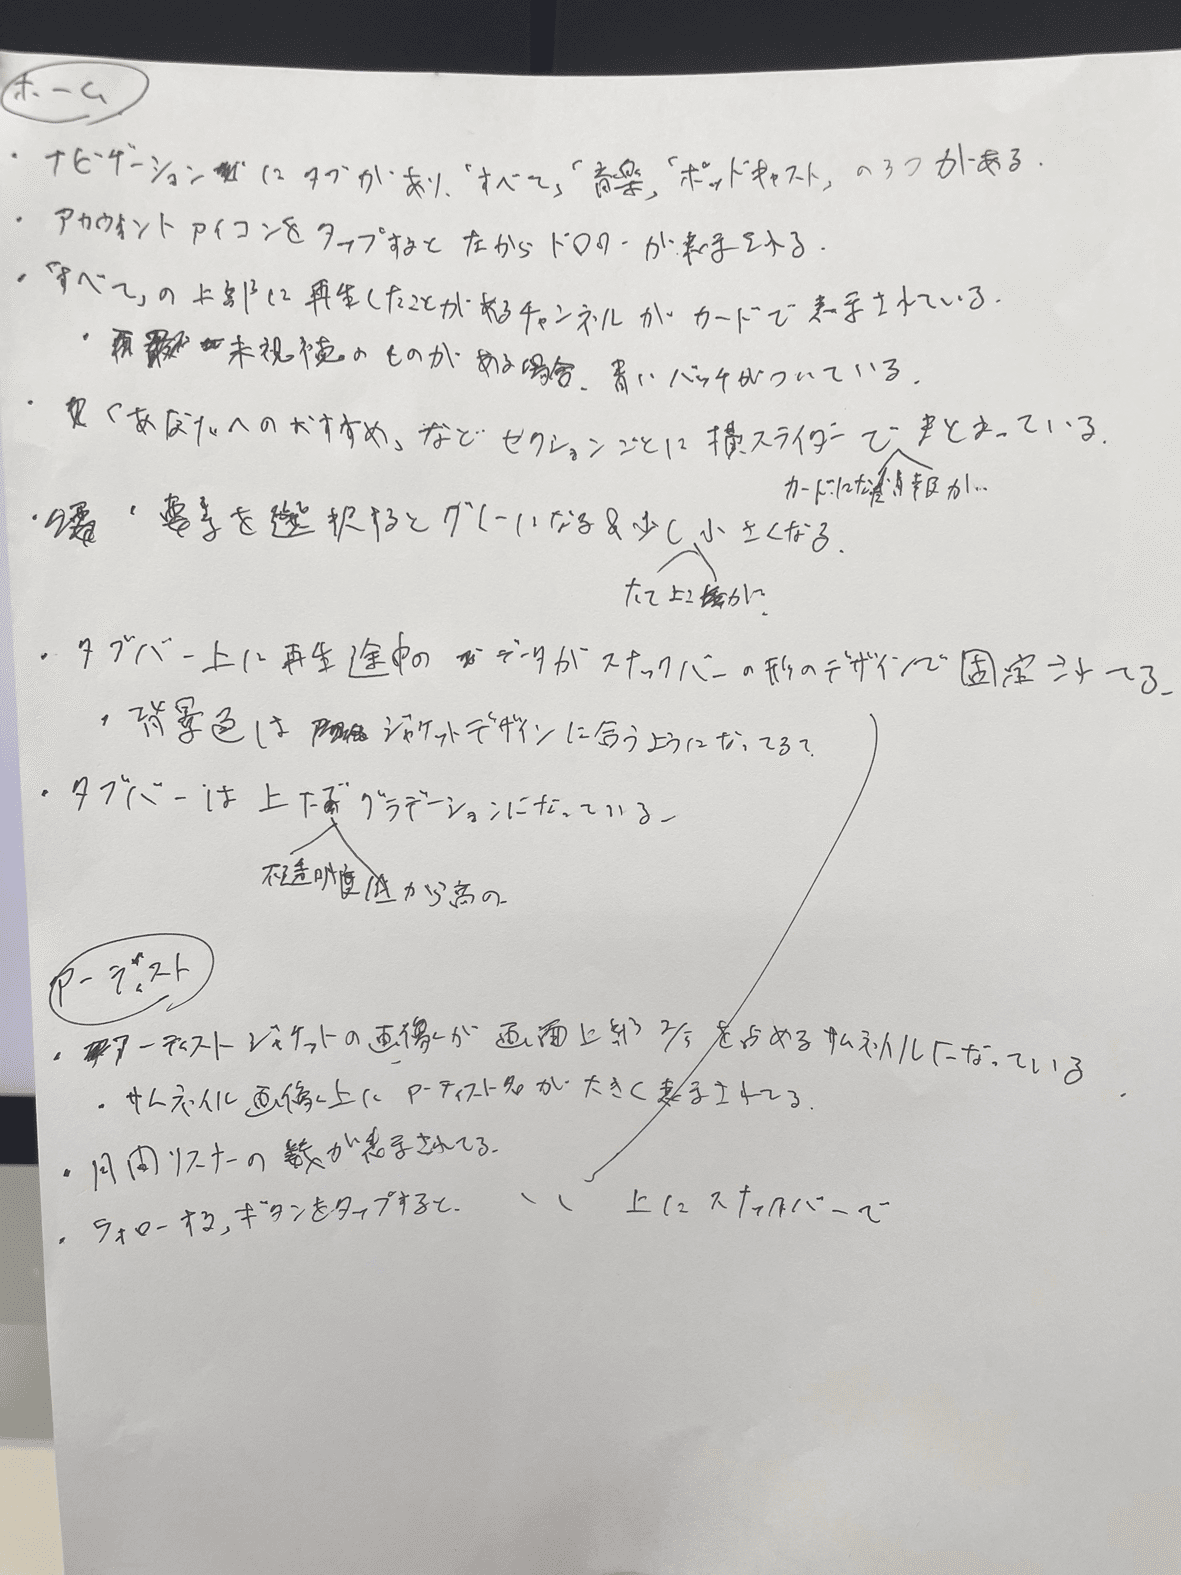 ホーム
・ナビゲーションにタブがあり、「すべて」「音楽」「ポッドキャスト」の3つがある.
・アカウントアイコンをタップすると左からドロワーが表示される.
・「すべて」の上部に再生したことがあるチャンネルがカードで表示されている.
・未視聴のものがある場合、青いバッチがついている.
・「あなたへのおすすめ」などセクションごとに横スライダーでまとまっている.
カードになり情報が..
・要素を選択するとグレーになる&少し小さくなる.
たて よこ
・タブバー上に再生途中のデータがスナックバーの形のデザインで固定されてる.
・背景色はジャケットデザインに合うようになってる?
・タブバーは上下グラデーションになっている.
不透明度低から高の
アーティスト
・アーティストジャケットの画像が画面上部2/5を占めるサムネイルになっている
・サムネイル画像上にアーティスト名が大きく表示されてる.
・月間リスナーの数が表示されてる.
・フォローする」ボタンをタップすると、 〃 上にスナックバーで